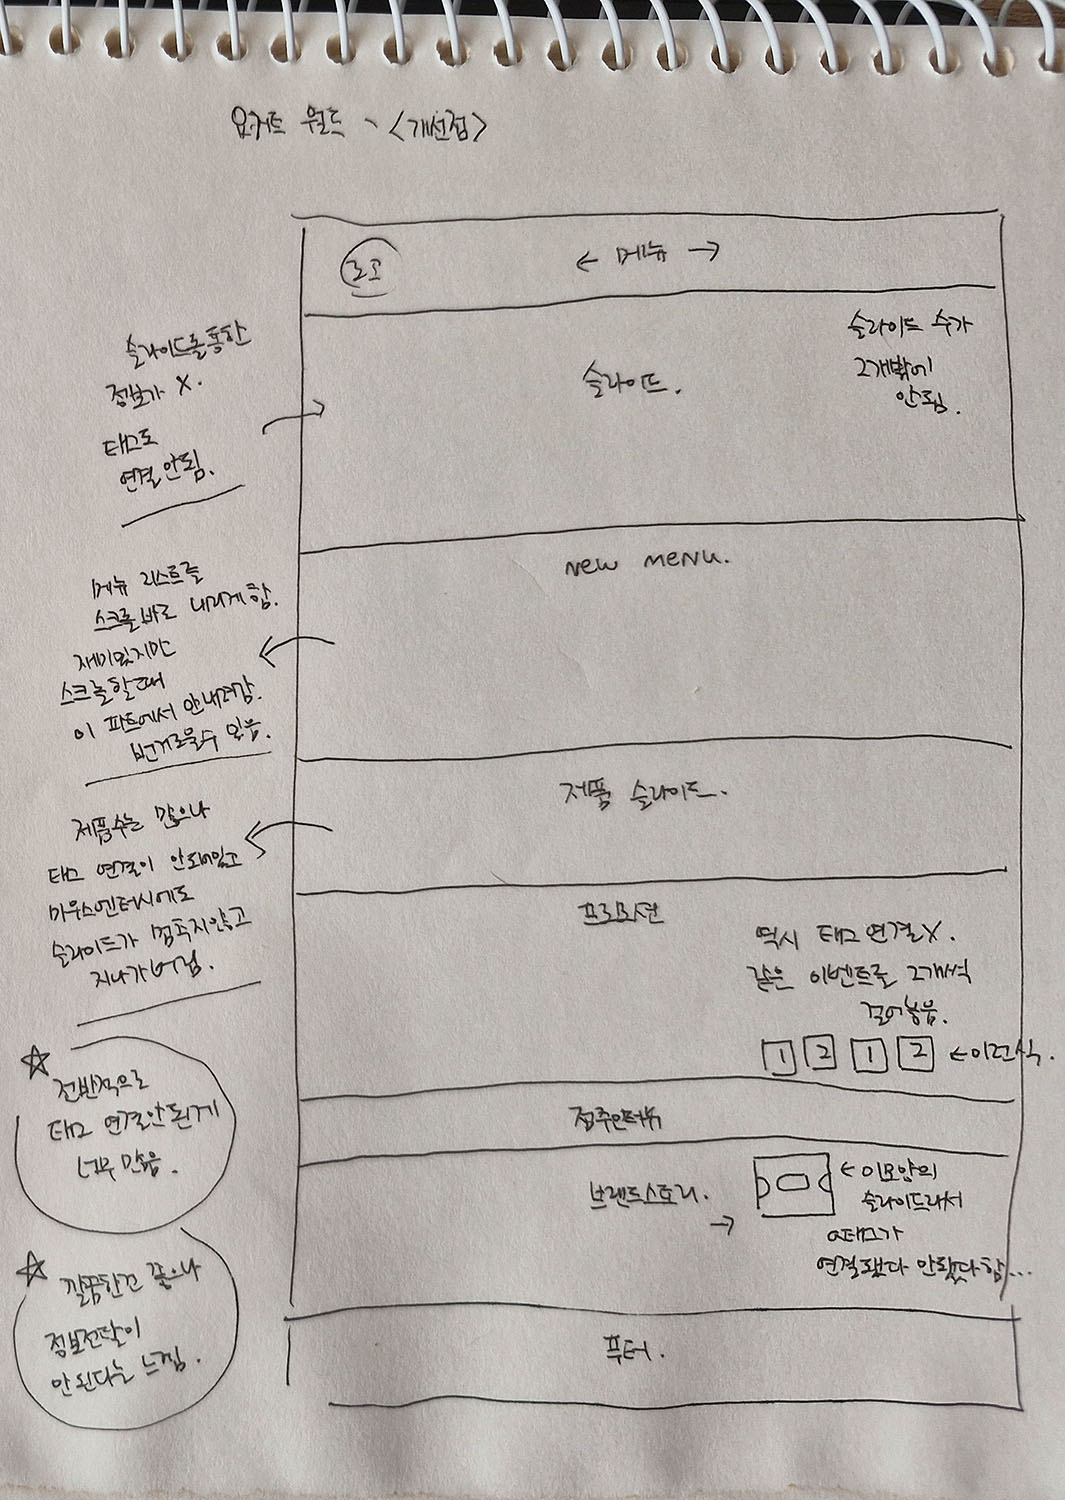 요거트 월드 - <개선점>
로고
← 메뉴 →
슬라이드를통한
정보가 X.
태그도
연결안됨.
슬라이드.
슬라이드 수가
2개밖에
안됨.
NEW MENU.
메뉴 리스트를
스크롤바로 내리게함.
재미있지만
스크롤할때
이 파트에서 안내려감.
번거로울수 있음.
제품 슬라이드.
제품수는 많으나
태그 연결이 안되어있고
마우스엔터시에도
슬라이드가 멈추지않고
지나가버림.
프로모션
역시 태그연결X.
같은 이벤트를 2개씩
걸어놓음.
1 2 1 2 ←이런식.
☆ 전반적으로
태그 연결안된게
너무 많음.
점주인터뷰
브랜드스토리.
→
← 이모양의
슬라이드라서
a태그가
연결됐다 안됐다함...
☆ 깔끔한건 좋으나
정보전달이
안된다는 느낌.
푸터.